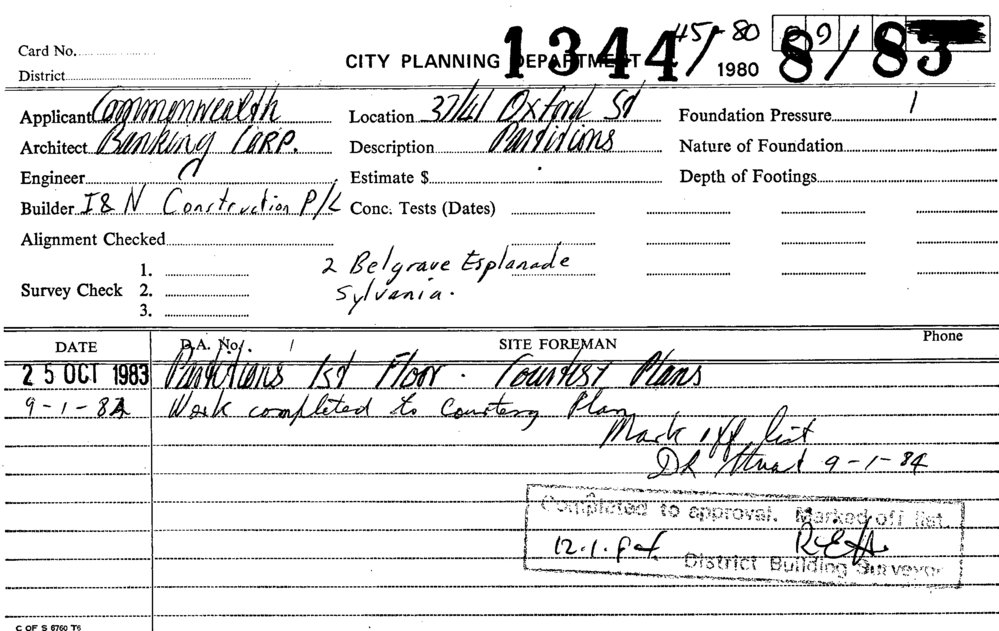 Card No.
District
CITY PLANNING DEPARTMENT
1344/ 45-80 1980 8/83
Applicant Commonwealth
Architect Banking CORP.
Engineer
Builder I & N Construction P/L
Location 37/41 Oxford St
Description Partitions
Estimate $
Conc. Tests (Dates)
Foundation Pressure
Nature of Foundation
Depth of Footings
Alignment Checked
Survey Check 1.
2.
3.
2 Belgrave Esplanade
Sylvania.
DATE D.A. No. SITE FOREMAN Phone
25 OCT 1983 Partitions 1st Floor. Courtesy Plans
9-1-84 Work completed to Courtesy Plan
Mark off list
9-1-84
Completed to approval. Marked off list.
12.1.84.
District Building Surveyor
C OF S 6760 T6